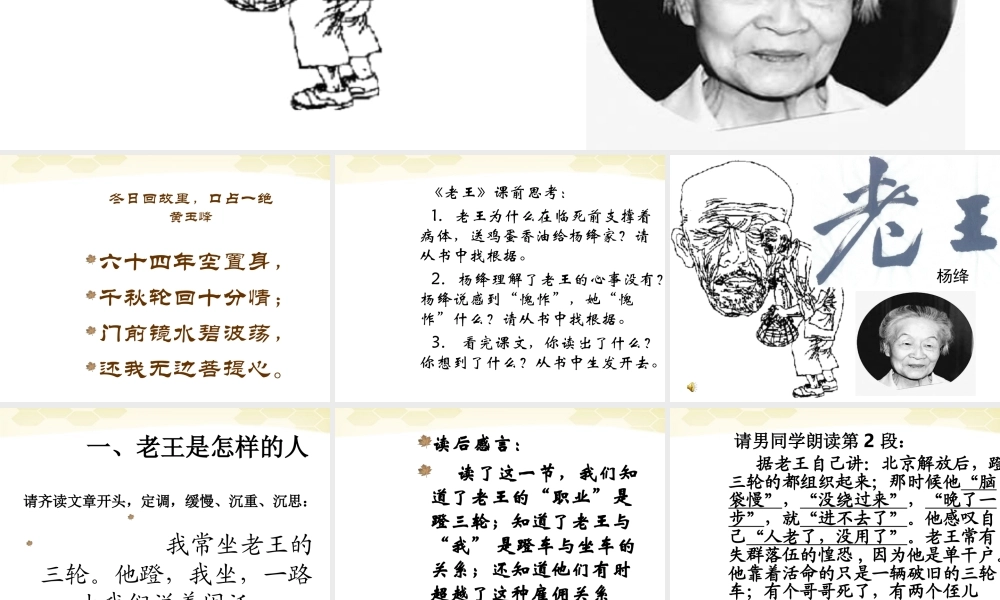 冬日回故里，口占一绝
黄玉峰
六十四年空置身，
千秋轮回十分情；
门前镜水碧波荡，
还我无边菩提心。
《老王》课前思考：
1. 老王为什么在临死前支撑着
病体，送鸡蛋香油给杨绛家？请
从书中找根据。
2. 杨绛理解了老王的心事没有？
杨绛说感到“愧怍”，她“愧
怍”什么？请从书中找根据。
3. 看完课文，你读出了什么？
你想到了什么？从书中生发开去。
老王
杨绛
一、老王是怎样的人
请齐读文章开头，定调，缓慢、沉重、沉思：
我常坐老王的
三轮。他蹬，我坐，一路
读后感言：
读了这一节，我们知
道了老王的“职业”是
蹬三轮；知道了老王与
“我” 是蹬车与坐车的
关系；还知道他们有时
超越了这种雇佣关系
请男同学朗读第 2 段：
据老王自己讲：北京解放后，蹬
三轮的都组织起来；那时候他“脑
袋慢”，“没绕过来”，“晚了一
步”，就“进不去了”。他感叹自
己“人老了，没用了”。老王常有
失群落伍的惶恐，因为他是单干户。
他靠着活命的只是一辆破旧的三轮
车；有个哥哥死了，有两个侄儿